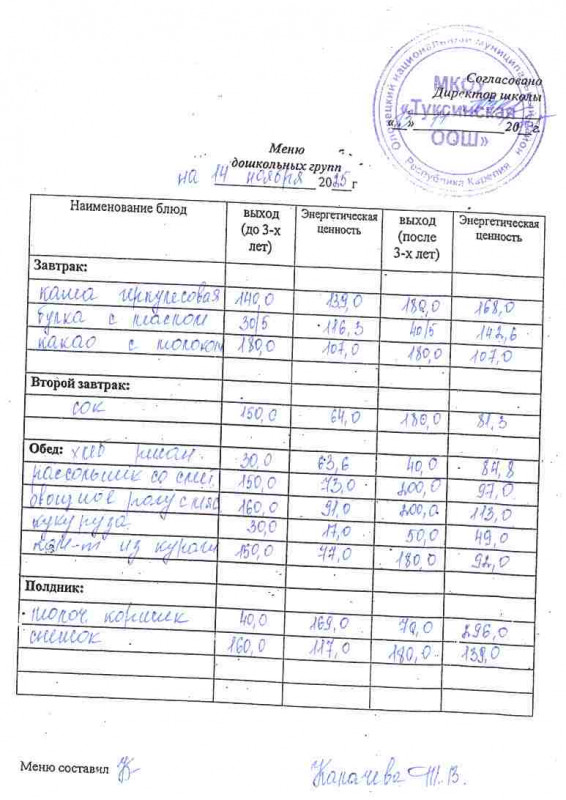 Олонецкий национальный муниципальный район
МКОУ
«Туксинская
ООШ»
Республика Карелия
Согласовано
Директор школы
«__»____________20__г.
Меню
дошкольных групп
на 14 ноября 2025 г
Наименование блюд | выход (до 3-х лет) | Энергетическая ценность | выход (после 3-х лет) | Энергетическая ценность
Завтрак:
каша геркулесовая 140,0 139,0 180,0 168,0
булка с маслом 30/5 116,3 40/5 142,6
какао с молоком 180,0 107,0 180,0 107,0
Второй завтрак:
сок 150,0 64,0 180,0 81,3
Обед: хлеб ржан. 30,0 63,6 40,0 84,8
рассольник со смет. 150,0 73,0 200,0 97,0
овощное рагу с мяс 160,0 91,0 200,0 113,0
кукуруза 30,0 17,0 50,0 49,0
ком-т из кураги 150,0 77,0 180,0 92,0
Полдник:
твороч. коржик 40,0 169,0 70,0 296,0
снежок 160,0 117,0 180,0 139,0
Меню составил Капачева Т.В.